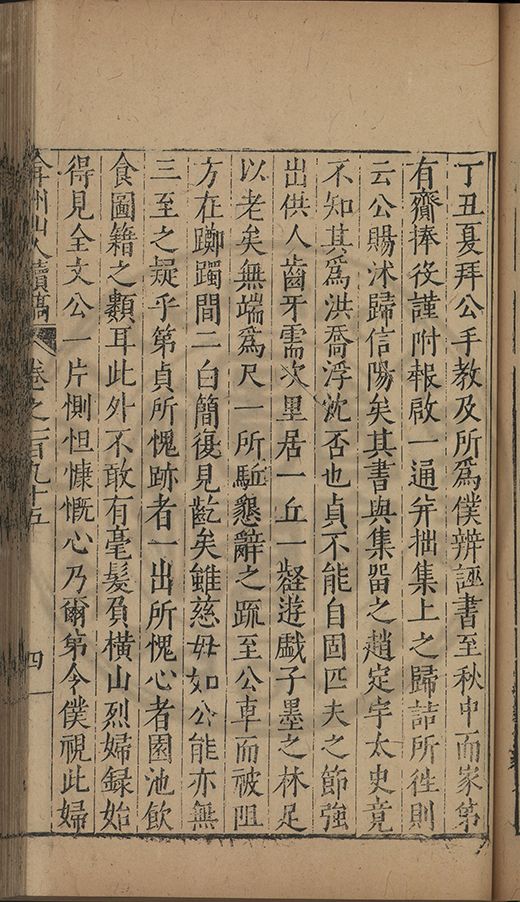 丁丑夏拜公手教及所爲僕辨誣書至秋中而家第
有齎捧役謹附報啟一通并拙集上之歸詰所徃則
云公賜沐歸信陽矣其書與集畱之趙定宇太史竟
不知其爲洪喬浮沈否也貞不能自固匹夫之節強
出供人齒牙需次里居一丘一壑遊戲子墨之林足
以老矣無端爲尺一所駈懇辭之疏至公車而被阻
方在躑躅間二白簡復見齕矣雖慈母如公能亦無
三至之疑乎第貞所愧跡者一出所愧心者園池飲
食圖籍之纇耳此外不敢有毫髮負橫山烈婦録始
得見全文公一片惻怛慷慨心乃爾第令僕視此婦
弇州山人續稿 卷之一百九十五 四